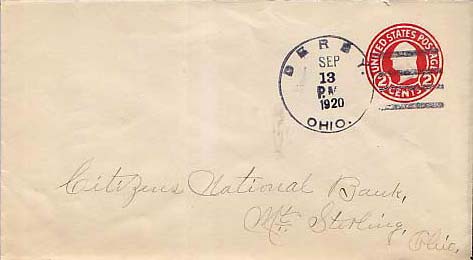 DERBY
SEP
13
P.M
1920
OHIO.
UNITED STATES POSTAGE
2 CENTS 2
Citizens National Bank,
Mt. Sterling,
Ohio.